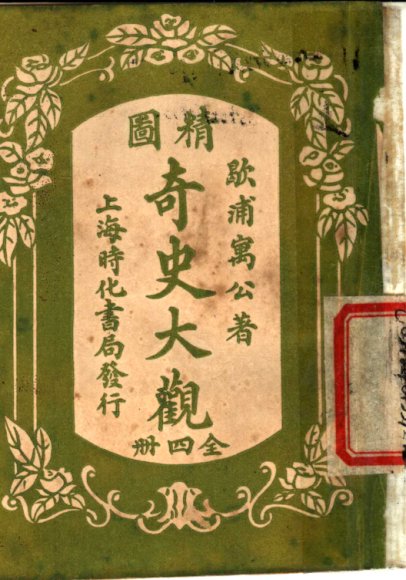 精圖
歇浦寓公著
奇史大觀
上海時化書局發行
全四册